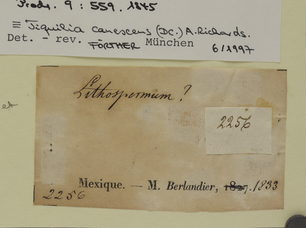 Prodr. 9 : 559. 1845
≡ Tiquilia canescens (DC.) A. Richards.
Det. - rev. FÖRTHER München 6/1997
et
Lithospermum ?
2256
Mexique. — M. Berlandier, 1827. 1833
2256